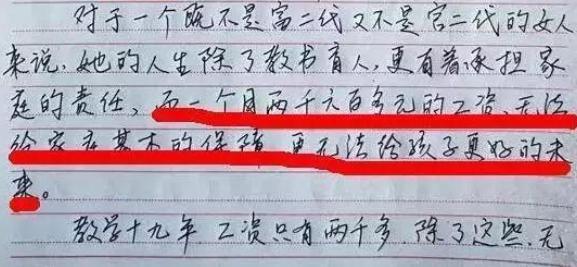 对于一个既不是富二代又不是官二代的女人
来说，她的人生除了教书育人，更有着承担家
庭的责任，而一个月两千六百多元的工资，无法
给家庭基本的保障，更无法给孩子更好的未
来。
教学十九年，工资只有两千多，除了这些，无